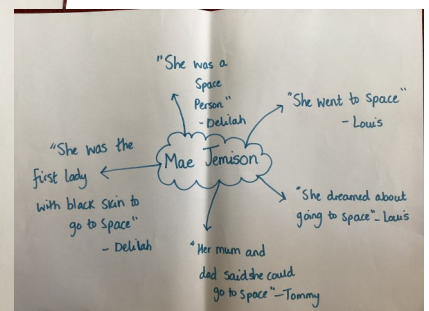 "She was a
Space
Person"
- Delilah
"She went to Space"
- Louis
Mae Jemison
"She was the
first lady
with black skin to
go to Space"
- Delilah
"She dreamed about
going to Space" - Louis
"Her mum and
dad said she could
go to Space" - Tommy